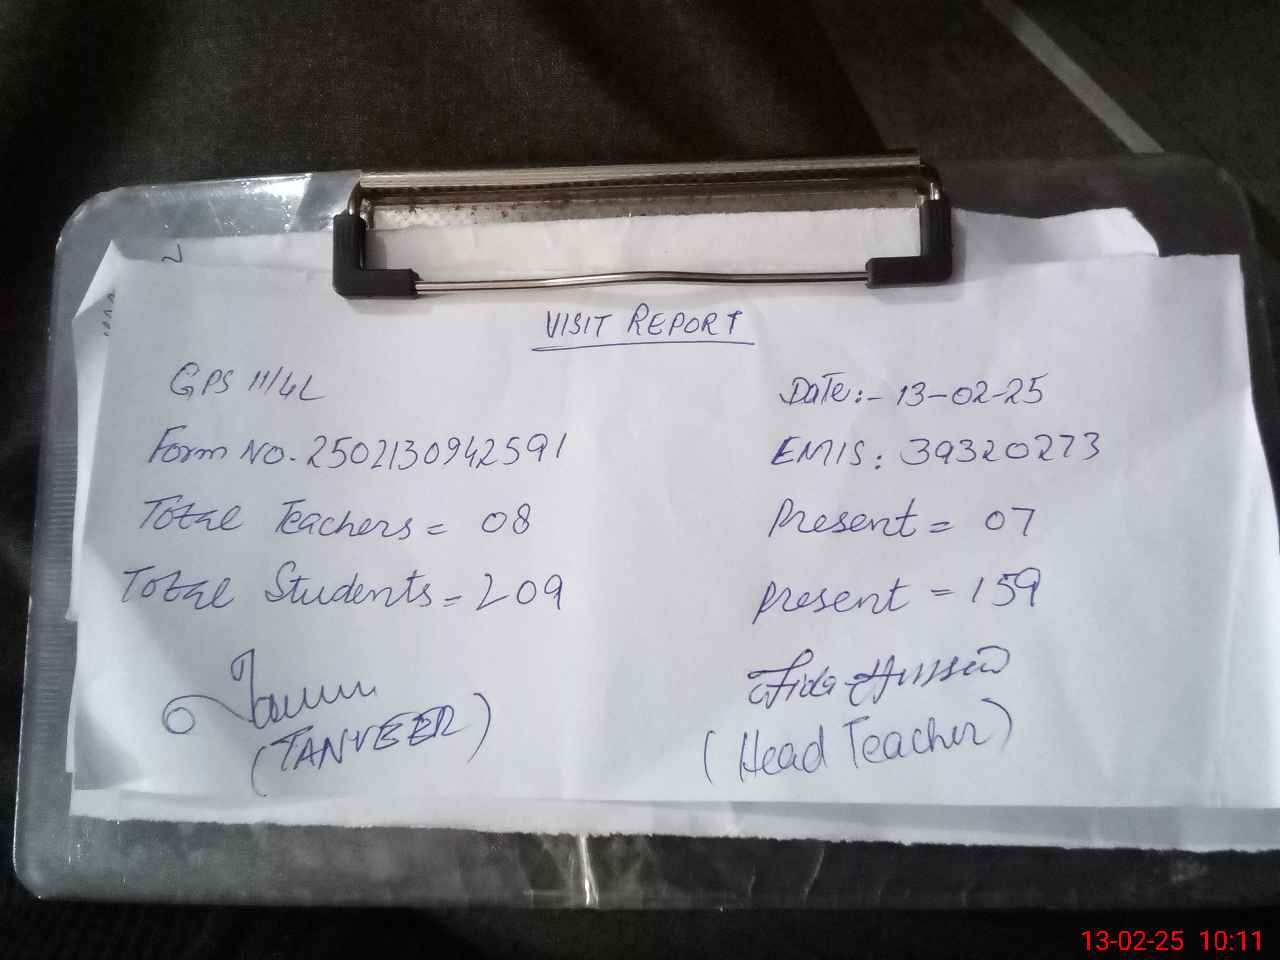 VISIT REPORT
GPS 11/4L
Date:- 13-02-25
Form No. 2502130942591
EMIS: 39320273
Total Teachers = 08
Present = 07
Total Students = 209
present = 159
Fida Hussain
(TANVEER)
(Head Teacher)
13-02-25 10:11